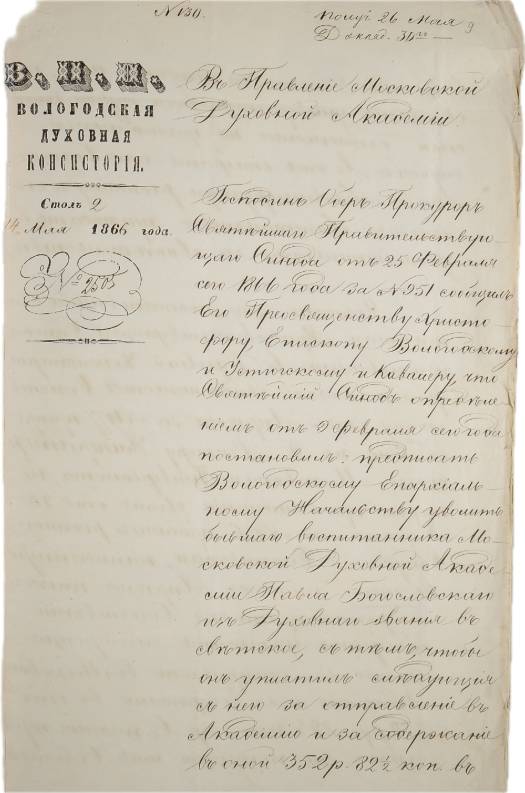 № 130.
Получ. 26 Мая
Доклад. 30го
В. П. І.
ВОЛОГОДСКАЯ
ДУХОВНАЯ
КОНСИСТОРІЯ.
Столъ 2
Мая 1866 года.
№ 2505
Въ Правленіе Московской
Духовной Академіи
Господинъ Оберъ Прокуроръ
Святѣйшаго Правительствую-
щаго Синода отъ 25 Февраля
сего 1866 года за № 951 сообщилъ
Его Преосвященству Христо-
фору, Епископу Вологодскому
и Устюжскому и Кавалеру, что
Святѣйшій Синодъ опредѣле
ніемъ отъ 9 февраля сего года
постановилъ: предписать
Вологодскому Епархіаль-
ному Начальству уволить
бывшаго воспитанника Мо-
сковской Духовной Акаде
міи Павла Богословскаго
изъ Духовнаго званія въ
свѣтское, съ тѣмъ, чтобы
онъ уплатилъ слѣдующія
съ него за отправленіе въ
Академію и за содержаніе
въ оной 352 р. 82½ коп. въ